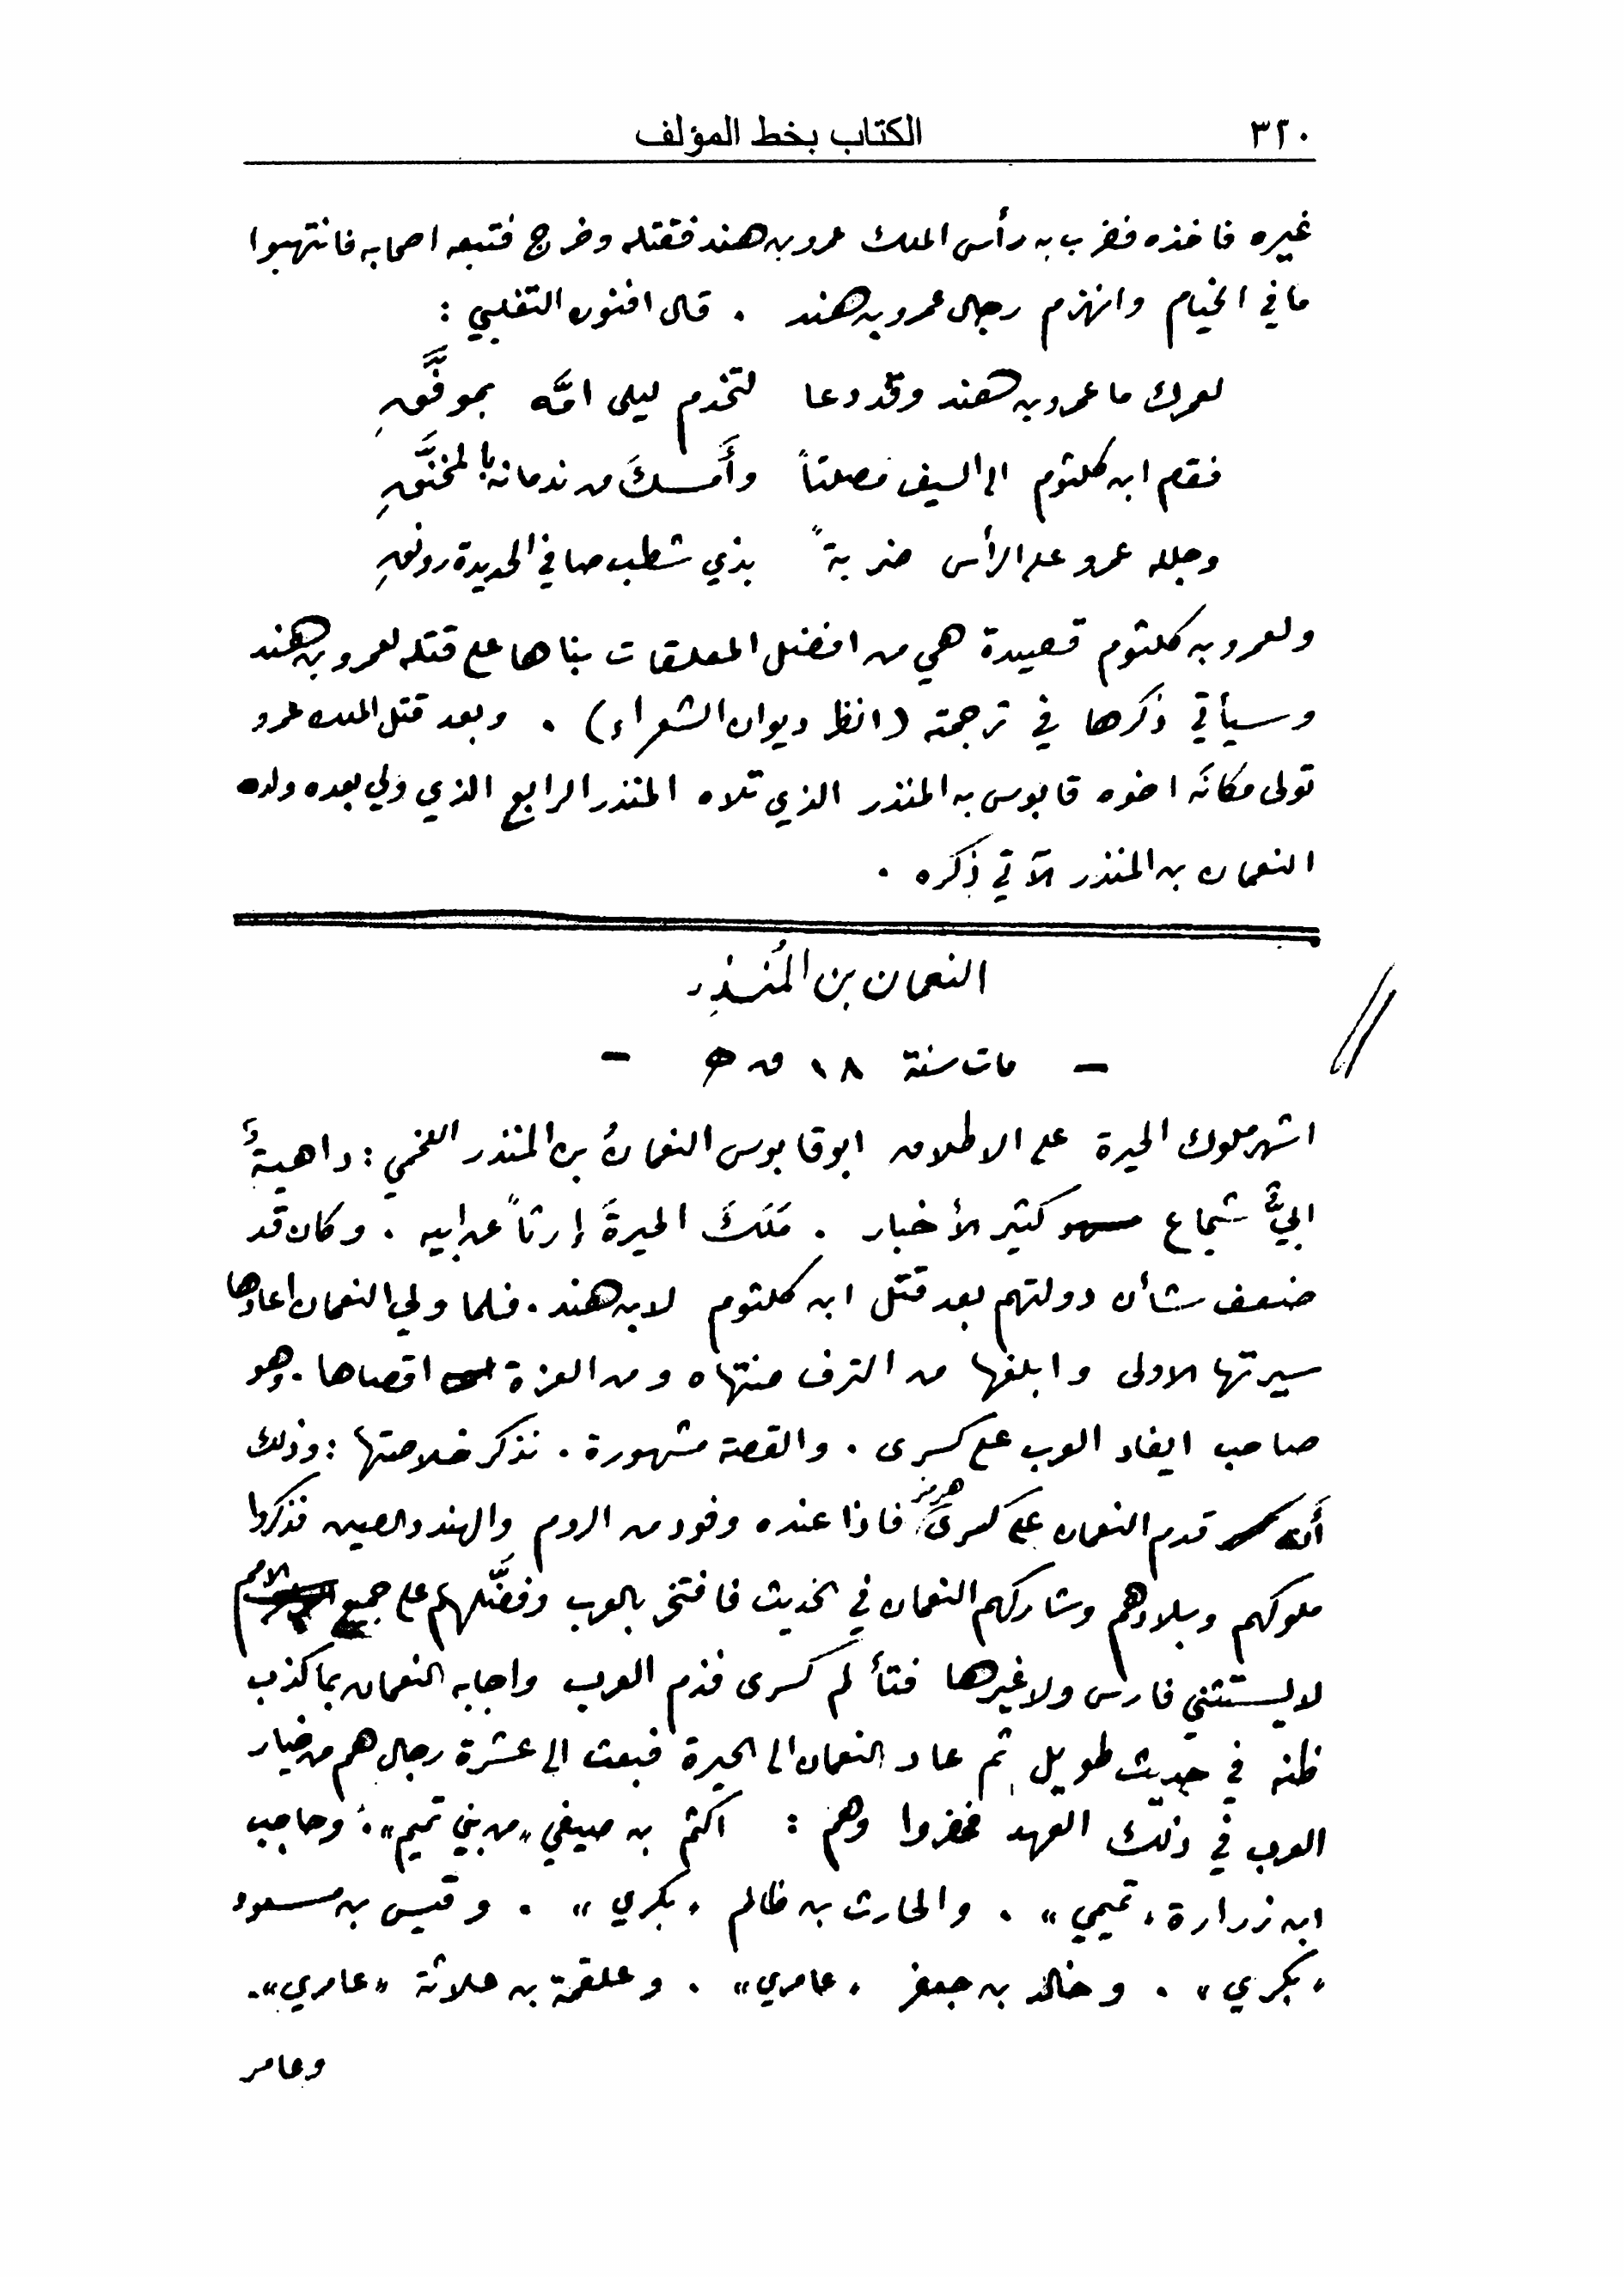 ٣٢٠ الكتاب بخط المؤلف
غيره فاخذه فضرب به رأس الملك عمرو بن هند فقتله وخرج فتبعه اصحابه فانتهبوا
ما في الخيام وانهزم رجال عمرو بن هند . قال افنون التغلبي :
لعمرك ما عمرو بن هند وقد دعا لتخدم ليلى امَّه بموفَّقِ
فقام ابن كلثوم الى السيف مصلتاً وأَمسكَ من ندمانه بالمخنَّقِ
وجلله عمرو على الرأس ضربةً بذي شطب صافي الحديدة رونقِ
ولعمرو بن كلثوم قصيدة هي من افضل المعلقات بناها على قتله لعمرو بن هند
وسيأتي ذكرها في ترجمته (انظر ديوان الشعراء) . وبعد قتل الملك عمرو
تولى مكانَه اخوه قابوس بن المنذر الذي تلاه المنذر الرابع الذي ولي بعده ولده
النعمان بن المنذر الآتي ذكره .
النعمان بن المُنذِر
– مات سنة ١٨ ق ه –
اشهر ملوك الحيرة على الاطلاق ابو قابوس النعمانُ بن المنذر اللخمي : داهيةٌ
ابيٌّ شجاع كثير الأخبار . مَلَكَ الحيرةَ إرثاً عن ابيه . وكان قد
ضعف شأن دولتهم بعد قتل ابن كلثوم لابن هند . فلما ولي النعمان اعادها
سيرتها الاولى وابلغها من الترف منتهاه ومن العزة اقصاها . وهو
صاحب ايفاد العرب على كسرى . والقصة مشهورة . نذكر خلاصتها : وذلك
أنه قدم النعمان على كسرى هرمز فاذا عنده وفود من الروم والهند والصين فذكروا
ملوكهم وبلادهم وشاركهم النعمان في الحديث فافتخر بالعرب وفضَّلهم على جميع الامم
لا يستثني فارس ولا غيرها فتألم كسرى فذم العرب واجابه النعمان بما كذب
ظنه في حديث طويل ثم عاد النعمان الى الحيرة فبعث الى عشرة رجال هم من خيار
العرب في ذلك العهد فحضروا وهم : اكثم بن صيفي "من بني تميم" . وحاجب
ابن زرارة "تميمي" . والحارث بن ظالم "بكري" . وقيس بن مسعود
"بكري" . وخالد بن جعفر "عامري" . وعلقمة بن علاثة "عامري" .
وعامر